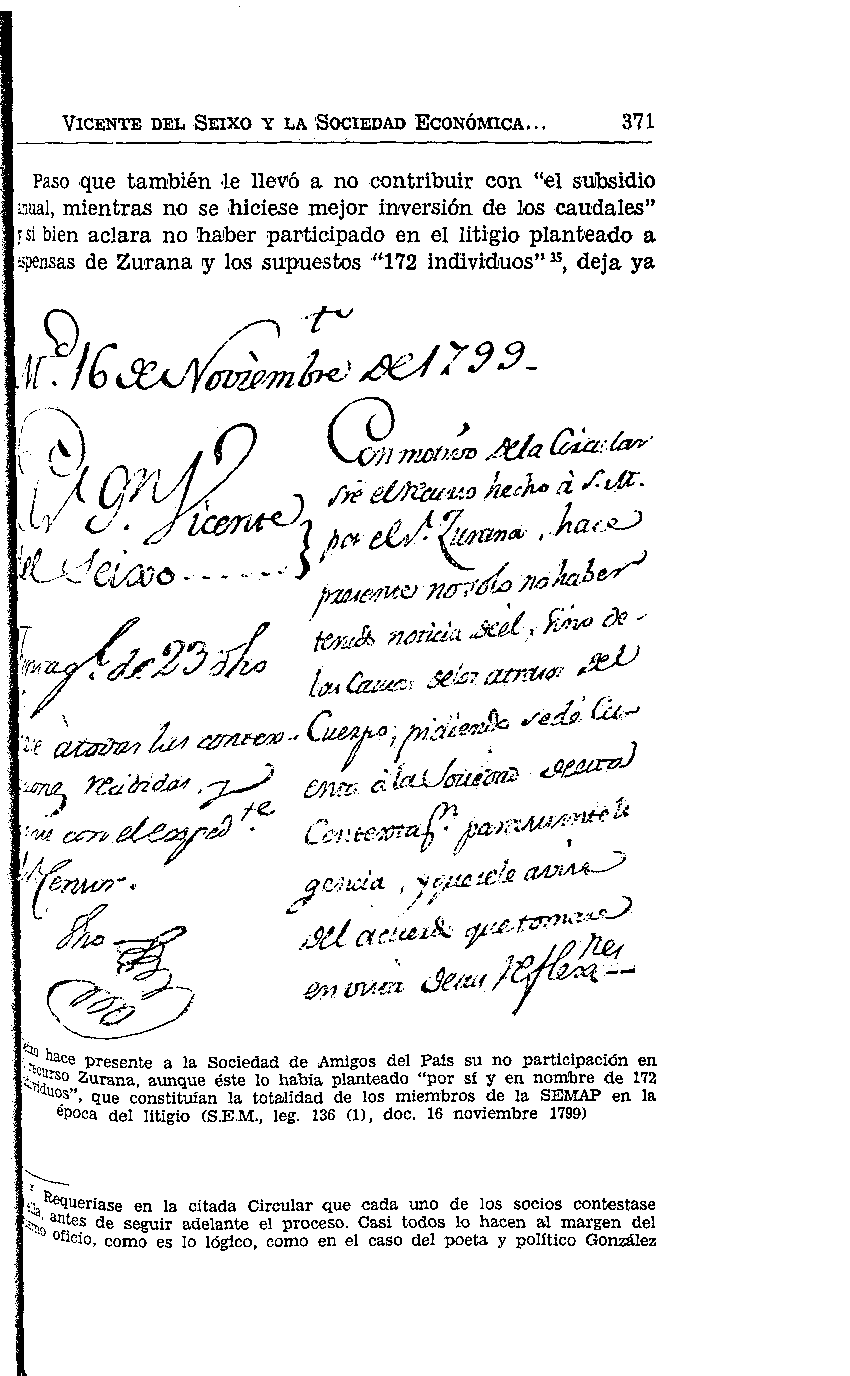 VICENTE DEL SEIXO Y LA SOCIEDAD ECONÓMICA... 371
Paso que también le llevó a no contribuir con "el subsidio
anual, mientras no se hiciese mejor inversión de los caudales"
y si bien aclara no haber participado en el litigio planteado a
expensas de Zurana y los supuestos "172 individuos" 15, deja ya
M.d 16 de Noviembre de 1799.
Vicente
del Seixo
de 23 dho
à todas las contex-
recibidas, y
con el exped.te
Censor.
Dho
Con motivo de la Circular
sre el recurso hecho à S. M.
por el S.r Zurana, hace
presente no solo no haber
tenido noticia de èl, sino de
las Causas de los atrasos del
Cuerpo; pidiendo se dè Cu-
enta à la Sociedad de esta
Contextaz.n para su inteli
gencia, y que se le avise
del acuerdo que tomare
en vista de sus reflexs.nes
Seixo hace presente a la Sociedad de Amigos del País su no participación en
recurso Zurana, aunque éste lo había planteado "por sí y en nombre de 172
individuos", que constituían la totalidad de los miembros de la SEMAP en la
época del litigio (S.E.M., leg. 136 (1), doc. 16 noviembre 1799)
Requeríase en la citada Circular que cada uno de los socios contestase
antes de seguir adelante el proceso. Casi todos lo hacen al margen del
oficio, como es lo lógico, como en el caso del poeta y político González